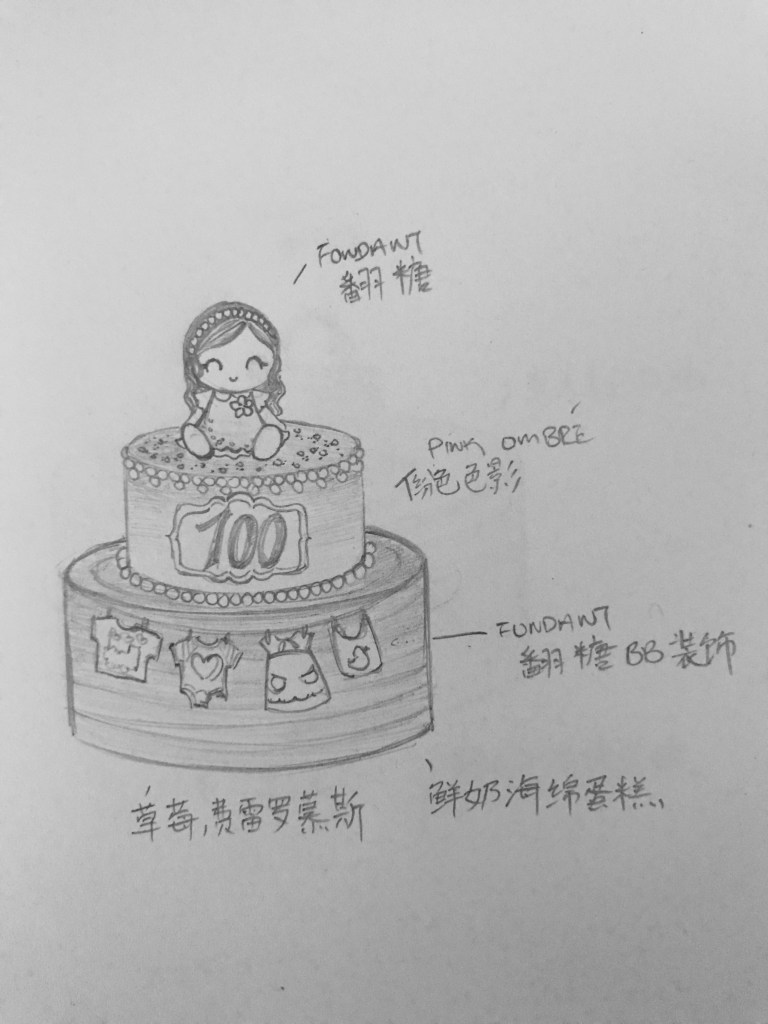 FONDANT
翻糖
PINK OMBRÉ
色影
100
FONDANT
翻糖BB装饰
草莓,费雷罗慕斯
鲜奶海绵蛋糕